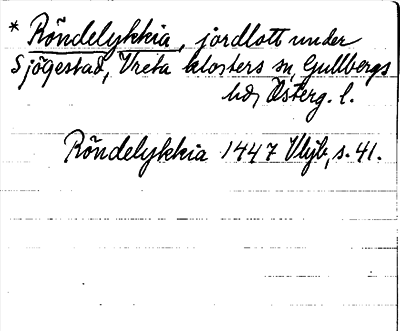 * Röndelykkia, jordlott under
Sjögestad, Vreta klosters sn, Gullbergs
hd, Österg. l.
Röndelykkia 1447 Vljb, s. 41.